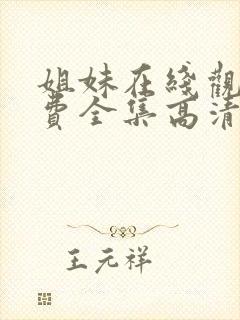 姐妹在綫觀
費全集高清
王元祥